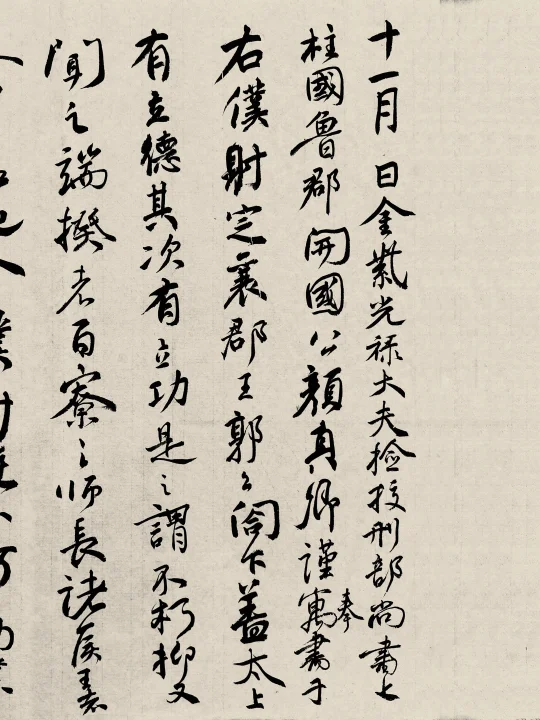 十一月 日金紫光祿大夫檢挍刑部尚書上
柱國魯郡開國公顏真卿謹寓書于
奉
右僕射定襄郡王郭公閤下蓋太上
有立德其次有立功是之謂不朽抑又
聞之端揆者百寮之師長諸侯王者